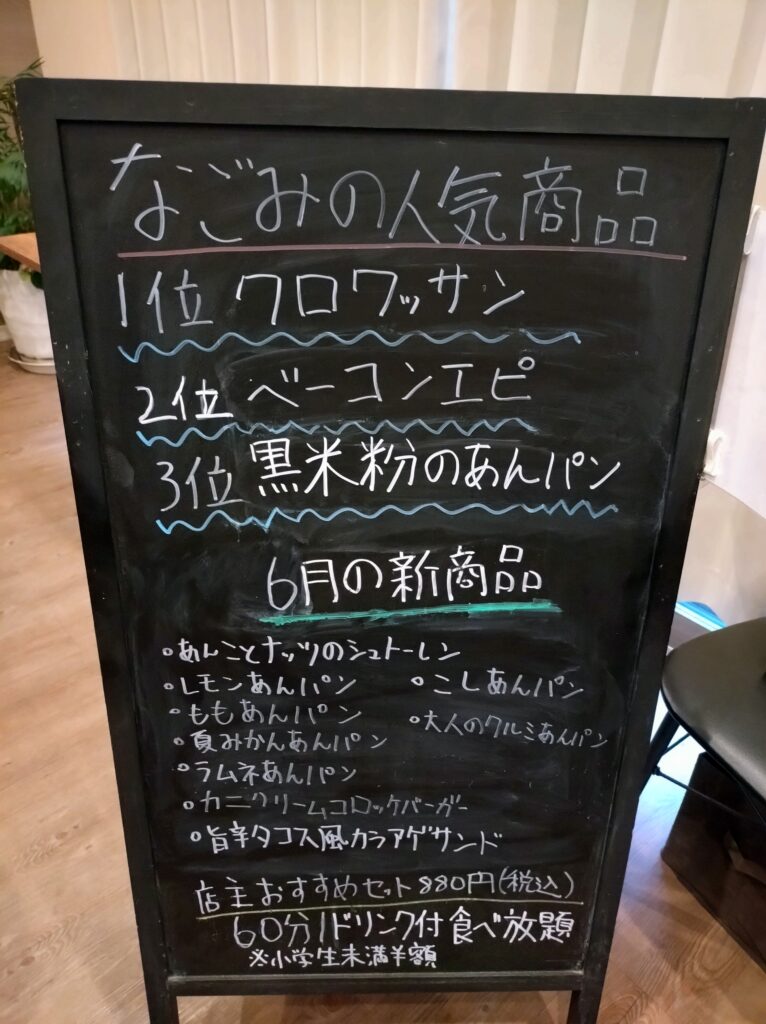 なごみの人気商品
1位 クロワッサン
2位 ベーコンエピ
3位 黒米粉のあんパン
6月の新商品
・あんことナッツのシュトーレン
・レモンあんパン ・こしあんパン
・ももあんパン ・大人のクルミあんパン
・夏みかんあんパン
・ラムネあんパン
・カニクリームコロッケバーガー
・旨辛タコス風カラアゲサンド
店主おすすめセット880円(税込)
60分1ドリンク付食べ放題
※小学生未満半額